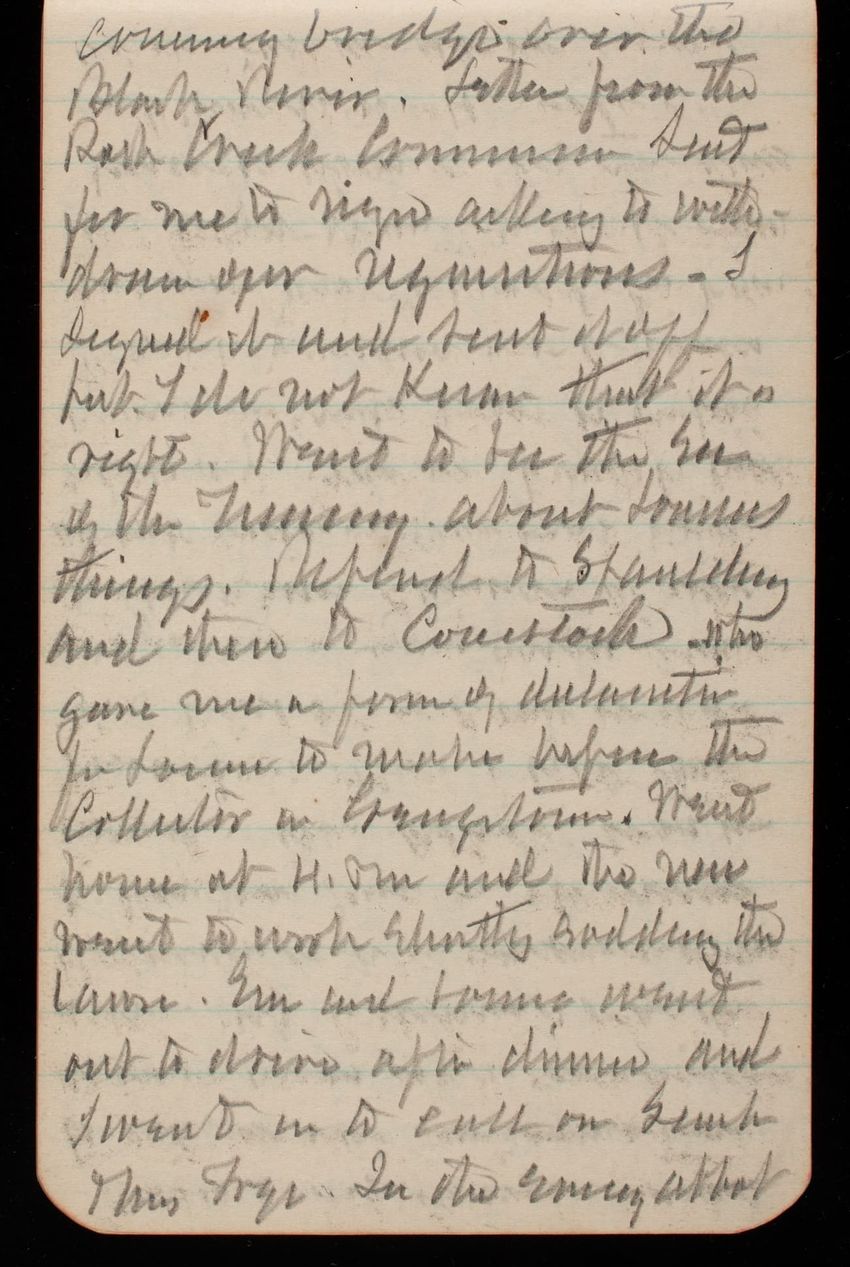 coming bridge over the
Black River. Letter from the
Rock Creek Commission Sent
for me to sign asking to with-
draw our requisitions - I
Signed it and sent it off
but I do not Know that it is
right. Went to see the Sec
of the Treasury about Louises
things. Referred to Spaulding
and then to Comstock who
gave me a form of declaration
for Louise to make before the
Collector in Georgetown. Went
home at 4. Pm and the men
went to work Shortly Sodding the
lawn. Em and Louise went
out to drive after dinner and
I went in to call on
Mrs Frye. In the evening Abbot